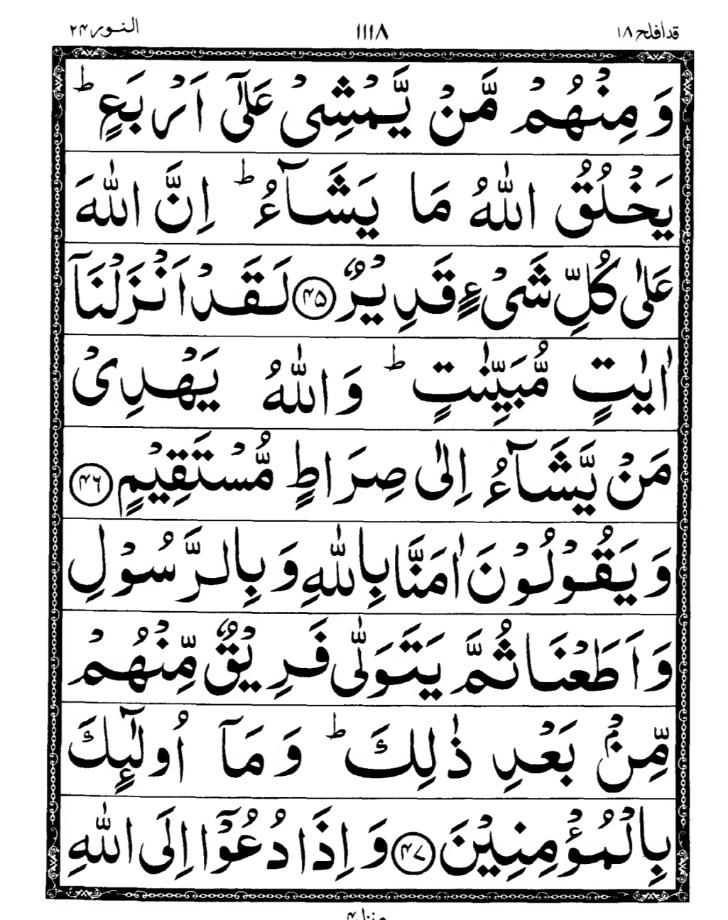 قدافلح ۱۸ ۱۱۱۸ النور ۲۴
وَ مِنْهُمْ مَّنْ يَّمْشِىْ عَلٰٓى اَرْبَعٍ ؕ
يَخْلُقُ اللّٰهُ مَا يَشَآءُ ؕ اِنَّ اللّٰهَ
عَلٰى كُلِّ شَىْءٍ قَدِيْرٌ ﴿۴۵﴾ لَقَدْ اَنْزَلْنَآ
اٰيٰتٍ مُّبَيِّنٰتٍ ؕ وَاللّٰهُ يَهْدِىْ
مَنْ يَّشَآءُ اِلٰى صِرَاطٍ مُّسْتَقِيْمٍ ﴿۴۶﴾
وَ يَقُوْلُوْنَ اٰمَنَّا بِاللّٰهِ وَ بِالرَّسُوْلِ
وَ اَطَعْنَا ثُمَّ يَتَوَلّٰى فَرِيْقٌ مِّنْهُمْ
مِّنْۢ بَعْدِ ذٰلِكَ ؕ وَ مَآ اُولٰٓئِكَ
بِالْمُؤْمِنِيْنَ ﴿۴۷﴾ وَ اِذَا دُعُوْٓا اِلَى اللّٰهِ
منزل ۴